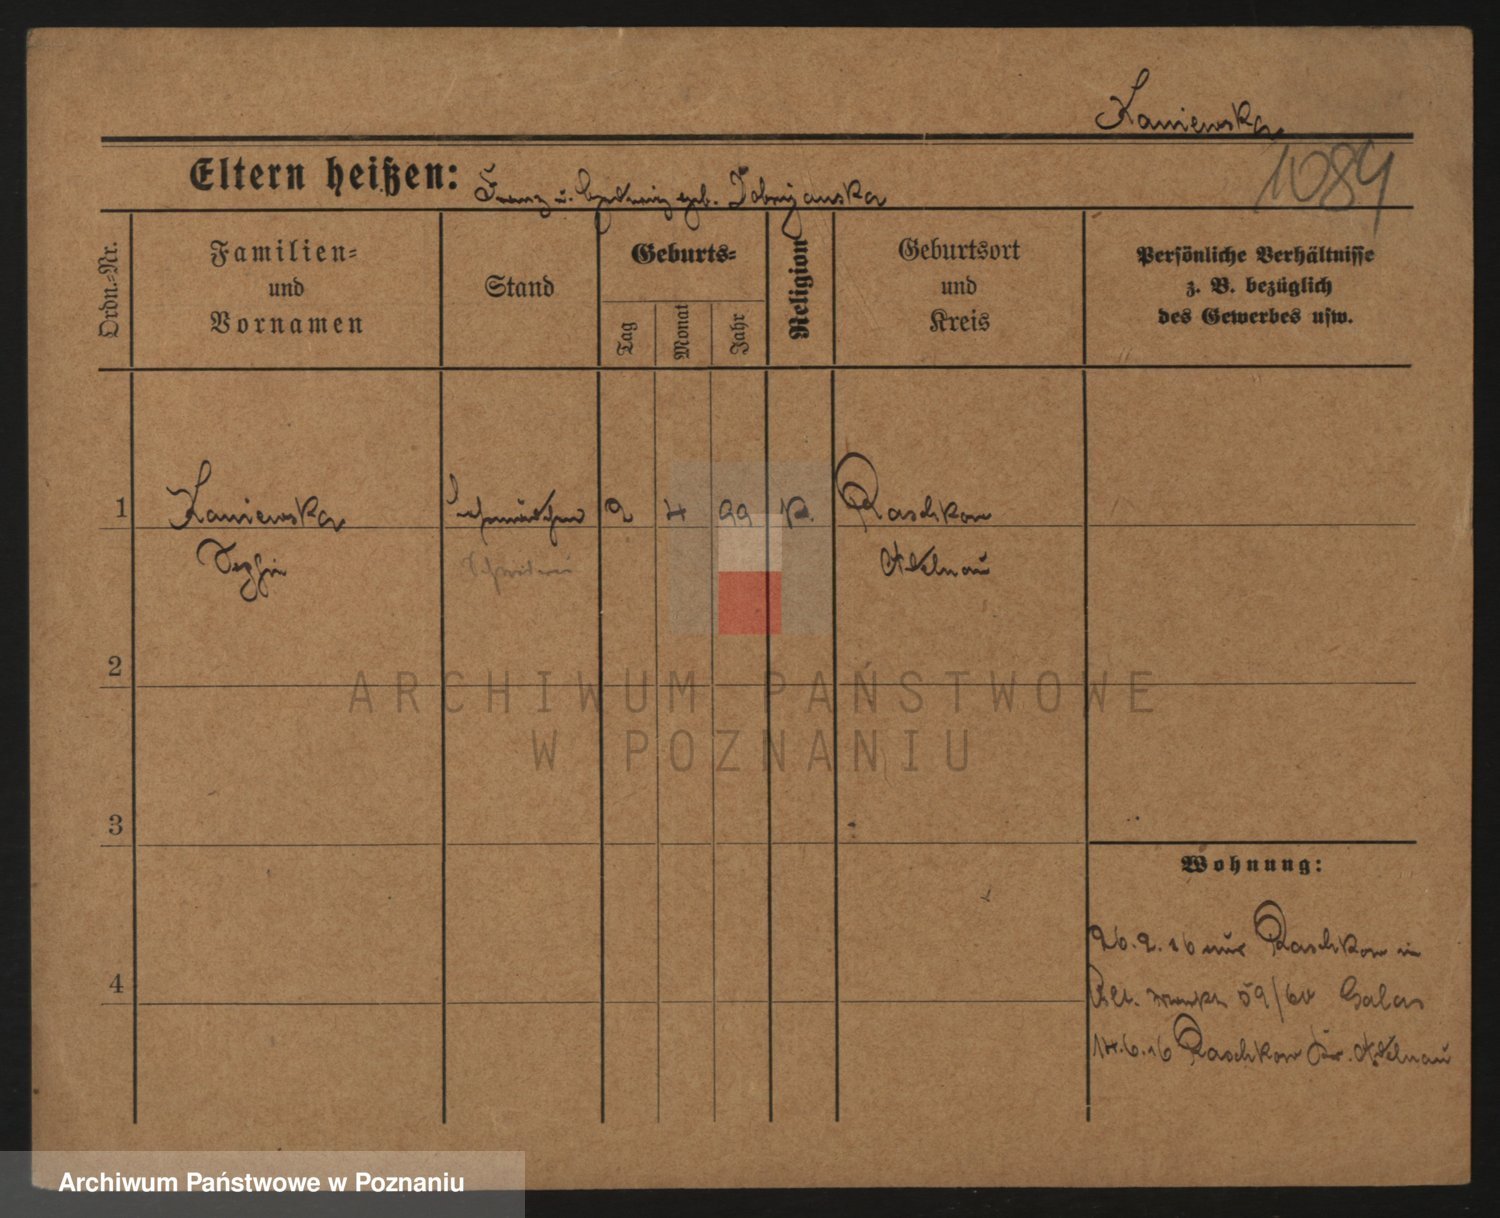 Kaniewska
1084
Eltern heißen: Franz u. Hedwig geb. Dobrzanska
Ordn.-Nr.
Familien-
und
Vornamen
Stand
Geburts-
Tag
Monat
Jahr
Religion
Geburtsort
und
Kreis
Persönliche Verhältnisse
z. B. bezüglich
des Gewerbes usw.
1 Kaniewska 2 4 99 k. Raschkow
Sophie Adelnau
2
3
4
Wohnung:
26.2.16 aus Raschkow in
Alt. Markt 59/60
14.6.16 Raschkow Kr. Adelnau
ARCHIWUM PAŃSTWOWE
W POZNANIU
Archiwum Państwowe w Poznaniu